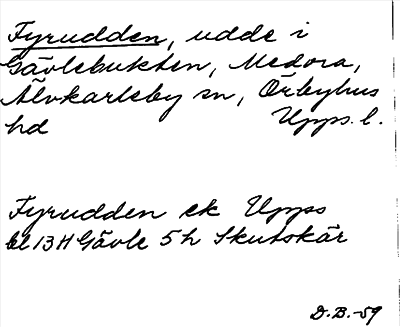 Fyrudden, udde i
Gävlebukten, Medora,
Älvkarleby sn, Örbyhus
hd Upps. l.
Fyrudden ek Upps
bl 13 H Gävle 5 h Skutskär
D.B.-59